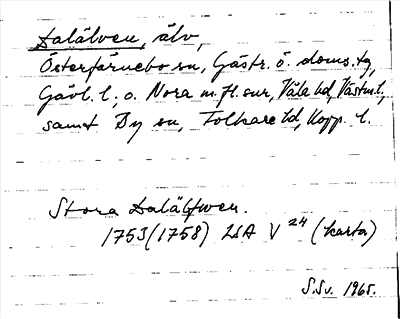 Dalälven, älv,
Österfärnebo sn, Gästr. ö. doms.tg,
Gävl. l., o. Nora m.fl. snr, Våla hd, Västm. l.,
samt By sn, Folkare hd, Kopp. l.
Stora Dalälfwen.
1753 (1758) LSA V 24 (karta)
S.Sv. 1965.